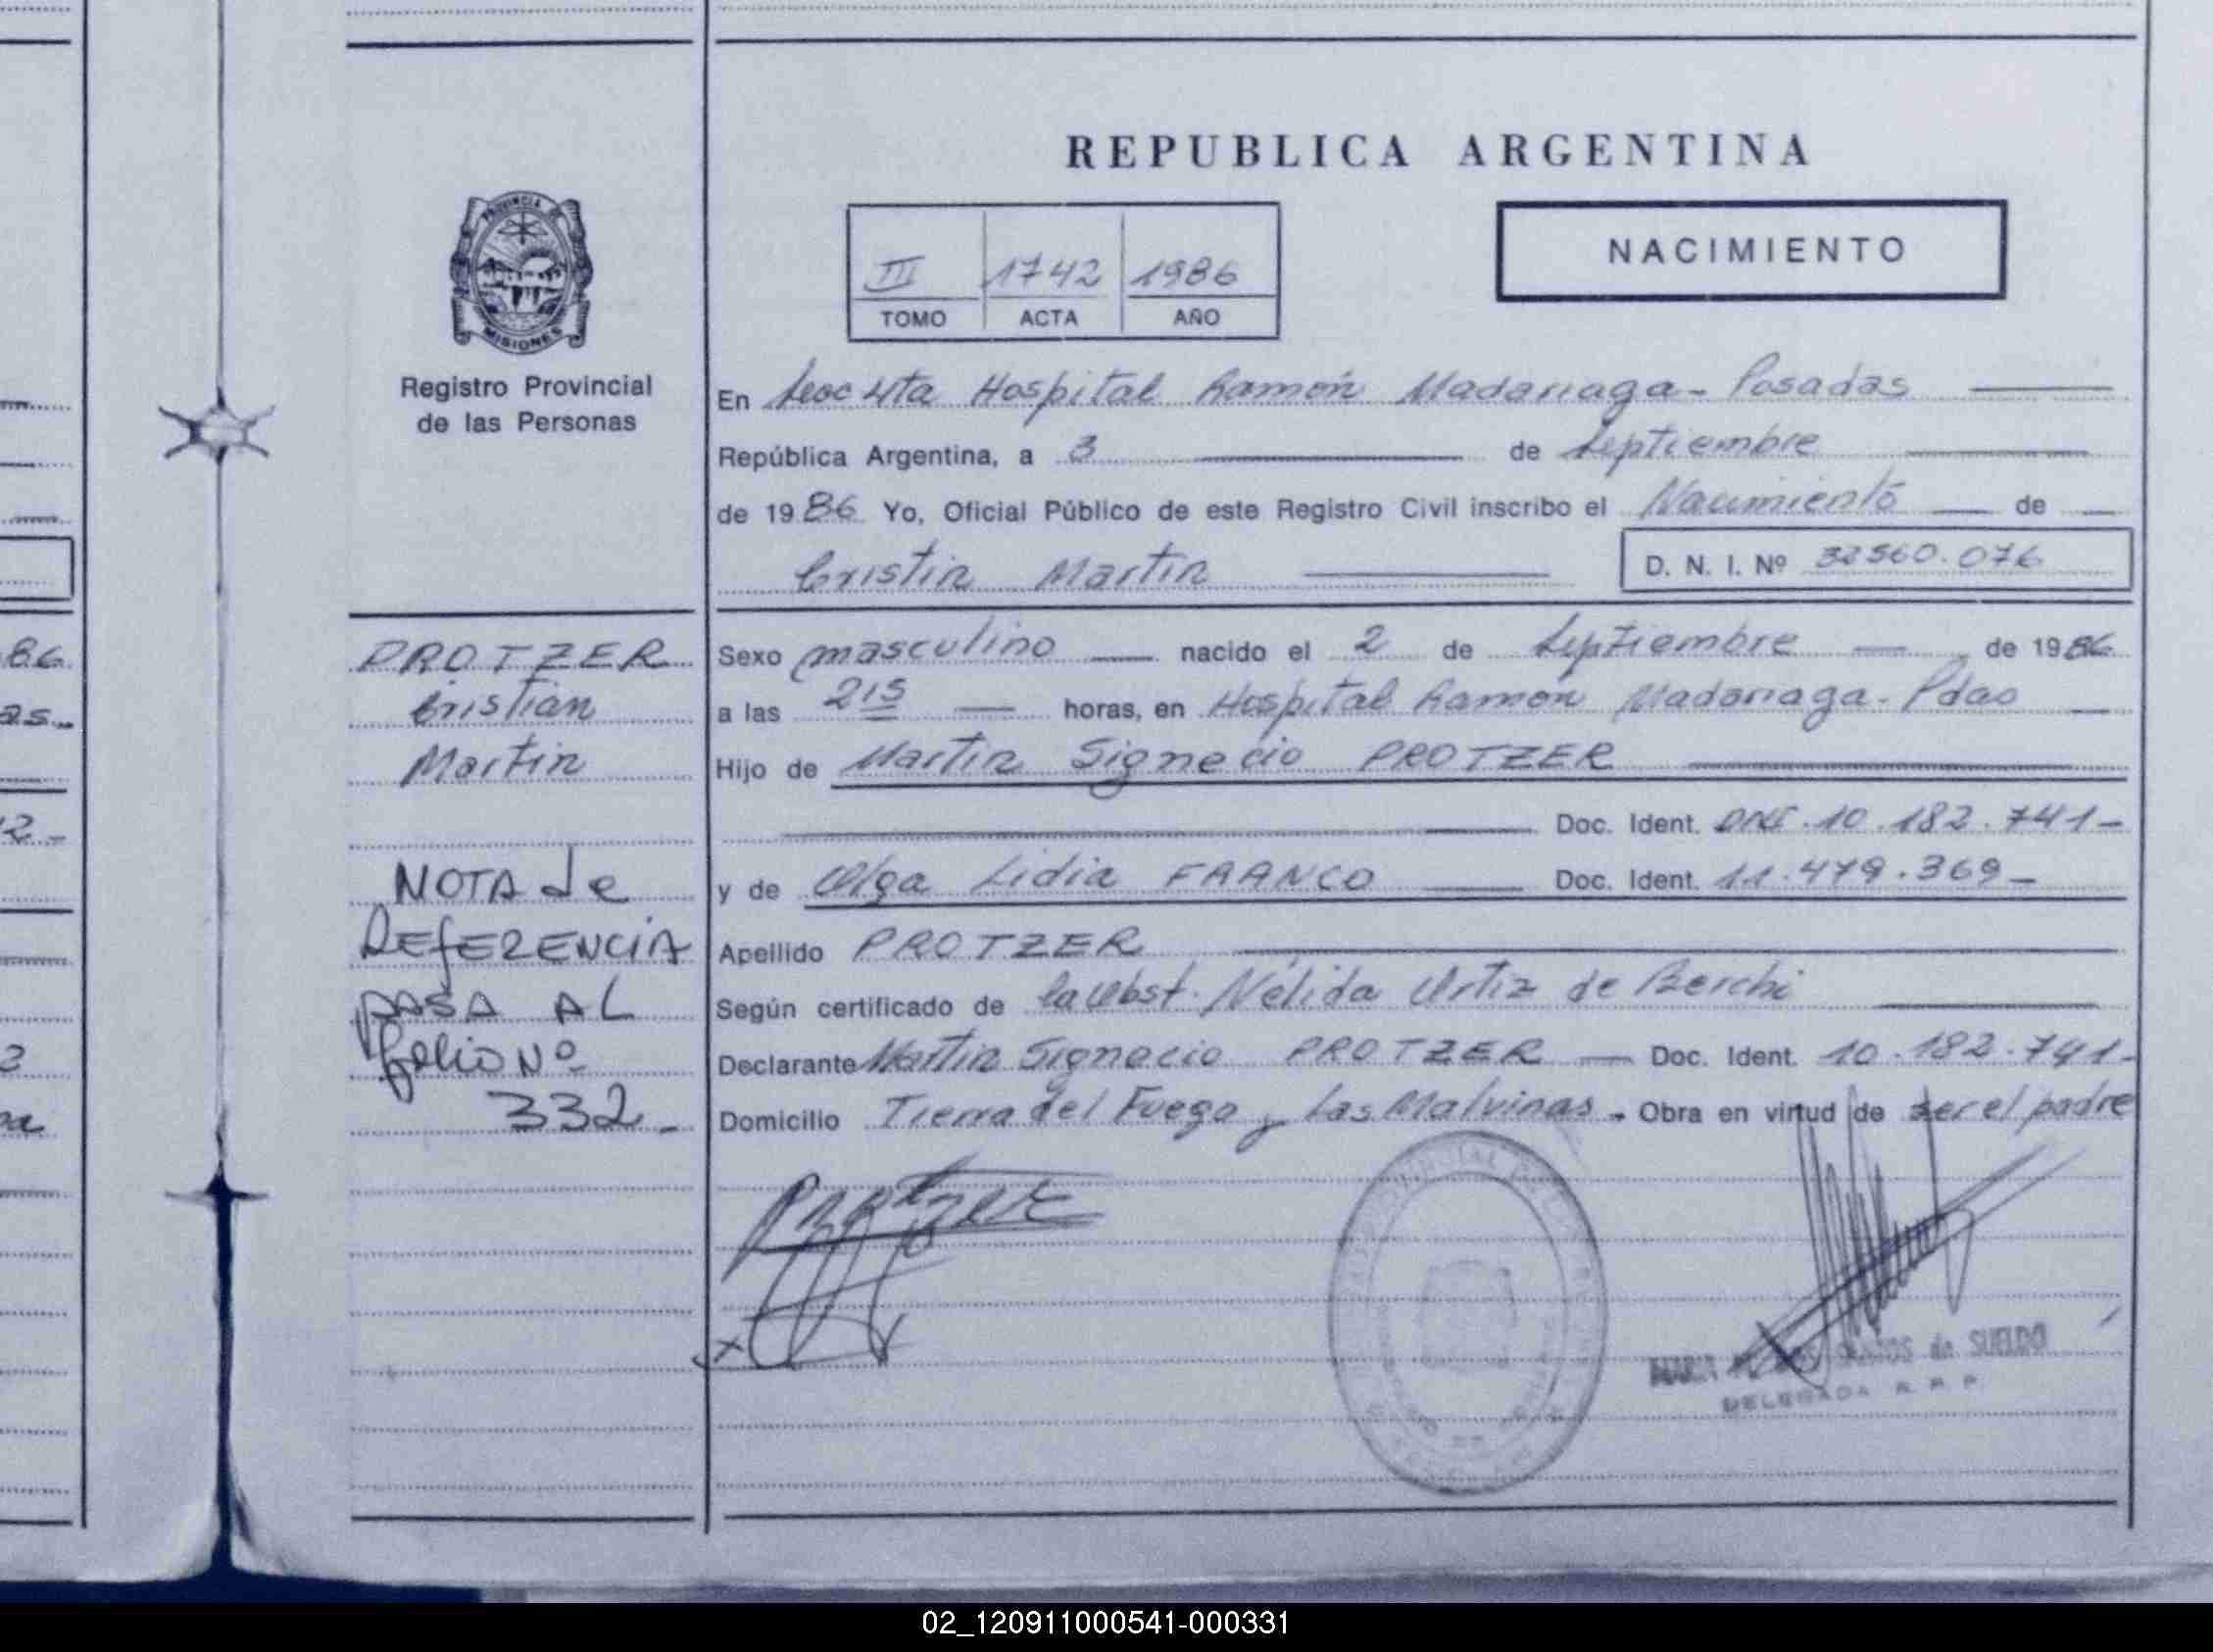 REPUBLICA ARGENTINA
III 1742 1986
TOMO ACTA AÑO
NACIMIENTO
PROVINCIA DE
MISIONES
Registro Provincial
de las Personas
En Secc 4ta Hospital Ramón Madariaga - Posadas
República Argentina, a 3 de Septiembre
de 1986 Yo, Oficial Público de este Registro Civil inscribo el Nacimiento de
Cristin Martin D. N. I. Nº 32560.076
PROTZER
Cristian
Martin
NOTA de
REfERENCIA
PASA AL
folio Nº
332-
Sexo masculino nacido el 2 de Septiembre de 1986
a las 215 horas, en Hospital Ramón Madariaga - Pdas
Hijo de Martin Signecio PROTZER
Doc. Ident. DNI. 10.182.741-
y de Olga Lidia FRANCO Doc. Ident. 11.479.369-
Apellido PROTZER
Según certificado de la Obst. Nélida Ortiz de Berchi
Declarante Martin Signecio PROTZER Doc. Ident. 10.182.741-
Domicilio Tierra del Fuego y Las Malvinas - Obra en virtud de ser el padre
Protzer
MARIA SANTOS de SUELDO
DELEGADA R. P. P.
86
as
2-
3
a
02_120911000541-000331